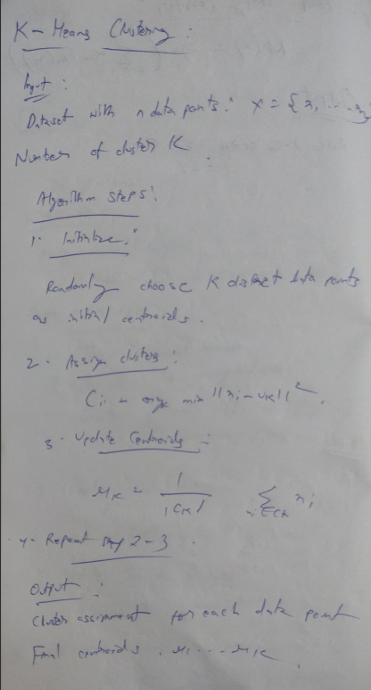 K-Means Clustering :
Input :
Dataset with n data points : X = {x₁ ... xₙ}
Number of cluster K
Algorithm steps :
1. Initialize :
Randomly choose K distinct data points
as initial centroids.
2. Assign clusters :
Ci = arg min ||xi - μK||²,
3. Update Centroids :
μK = 1/|CK| Σ xi∈CK xi
4. Repeat step 2-3
Output :
Cluster assignment for each data point
Final centroids . μ1 ... μK